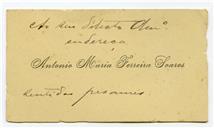 Ao seu
endereça
Antonio Maria Ferreira Soares
sentidos pesames